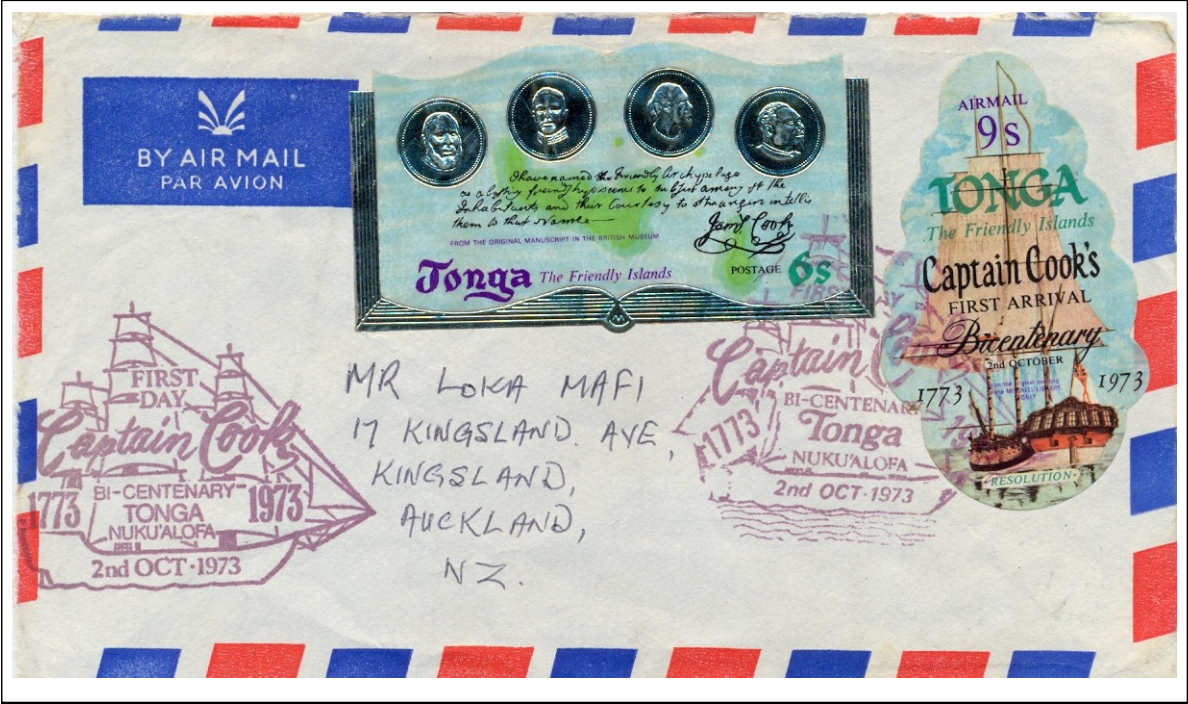 BY AIR MAIL
PAR AVION
I have named the Friendly Archypelago
as a lasting friendship seems to subsist among the
Inhabitants and their Courtesy to Strangers intitles
them to that Name
Jams Cook
FROM THE ORIGINAL MANUSCRIPT IN THE BRITISH MUSEUM
Tonga The Friendly Islands
POSTAGE 6s
AIRMAIL
9s
TONGA
The Friendly Islands
Captain Cook's
FIRST ARRIVAL
Bicentenary
2nd OCTOBER
1773 1973
RESOLUTION
MR LOKA MAFI
17 KINGSLAND. AVE,
KINGSLAND,
AUCKLAND,
NZ.
FIRST
DAY
Captain Cook
1773 BI-CENTENARY 1973
TONGA
NUKU'ALOFA
2nd OCT·1973
FIRST DAY
Captain
1773 BI-CENTENARY
Tonga
NUKU'ALOFA
2nd OCT·1973